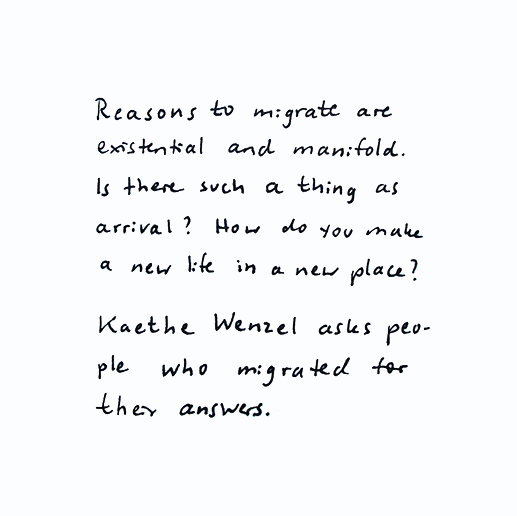 Reasons to migrate are
existential and manifold.
Is there such a thing as
arrival? How do you make
a new life in a new place?
Kaethe Wenzel asks peo-
ple who migrated for
their answers.